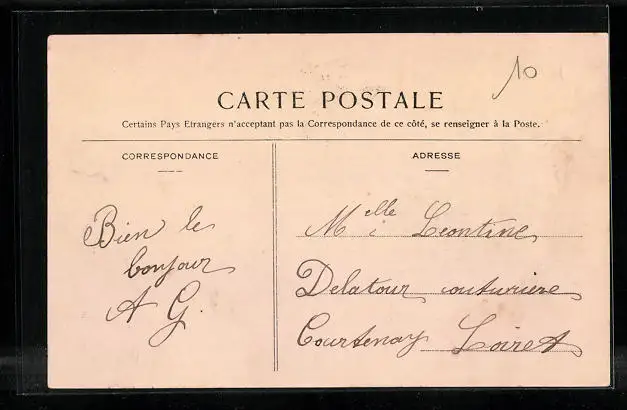 10
CARTE POSTALE
Certains Pays Etrangers n'acceptant pas la Correspondance de ce côté, se renseigner à la Poste.
CORRESPONDANCE
Bien le
bonjour
A G.
ADRESSE
Melle Leontine
Delatour couturiere
Courtenay Loiret